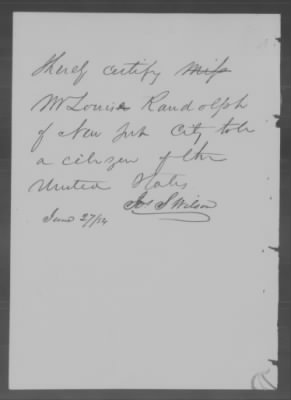 I hereby certify Miss
W Louise Randolph
of New York City to be
a citizen of the
United States
Jos S Wilson
June 27/14